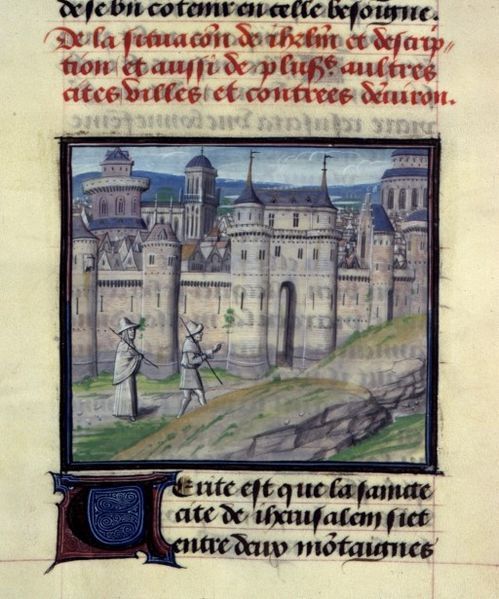 de se bn cotemr en celle besongne.
De la situacõn de ihrlm et descrip
tion et aussi de plusrs aultres
cites villes et contrees denviron.
Verite est que la saincte
cite de iherusalem siet
entre deux mõtaignes